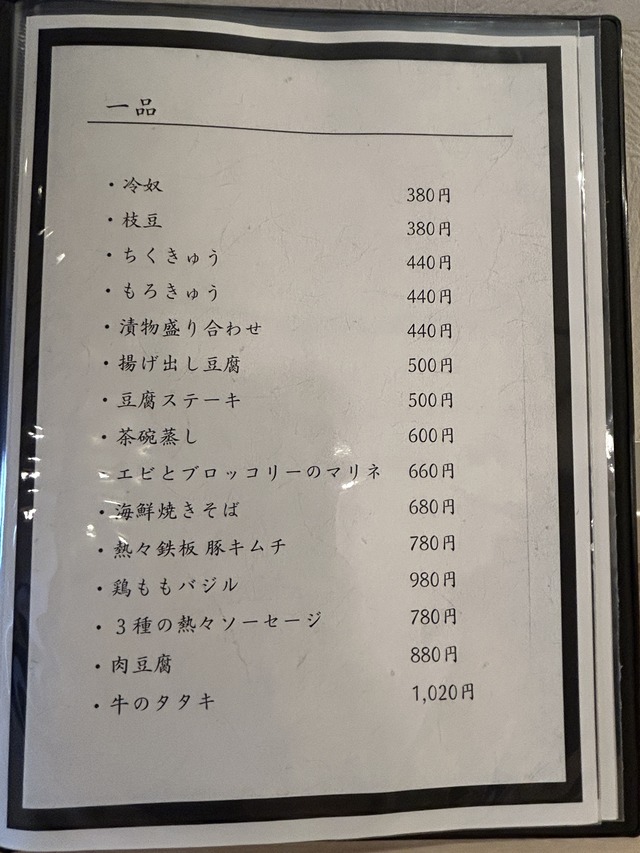 一品
・冷奴 380円
・枝豆 380円
・ちくきゅう 440円
・もろきゅう 440円
・漬物盛り合わせ 440円
・揚げ出し豆腐 500円
・豆腐ステーキ 500円
・茶碗蒸し 600円
・エビとブロッコリーのマリネ 660円
・海鮮焼きそば 680円
・熱々鉄板 豚キムチ 780円
・鶏ももバジル 980円
・３種の熱々ソーセージ 780円
・肉豆腐 880円
・牛のタタキ 1,020円